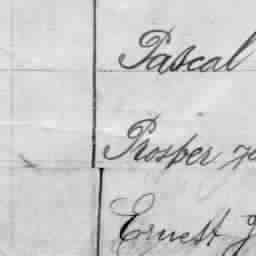 Pascal
Prosper
Ernest